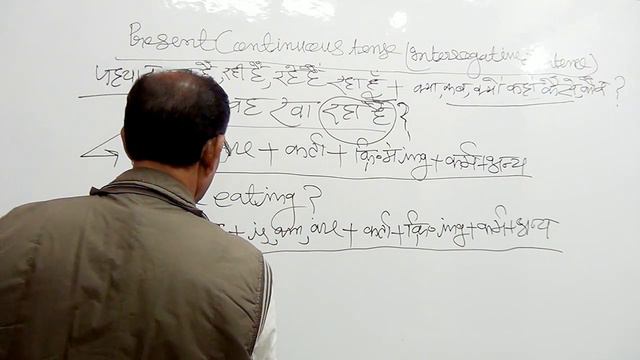 Present Continuous tense (Interrogative tence)
रहा है, रही है, रहे हैं रहा हूँ + क्या, कब, क्यों कहाँ कैसे, कौन ?
वह खा रहा है ?
are + कर्ता + क्रि॰ में ing + कर्म + अन्य
eating ?
+ is, am, are + कर्ता + क्रि॰ ing + कर्म + अन्य